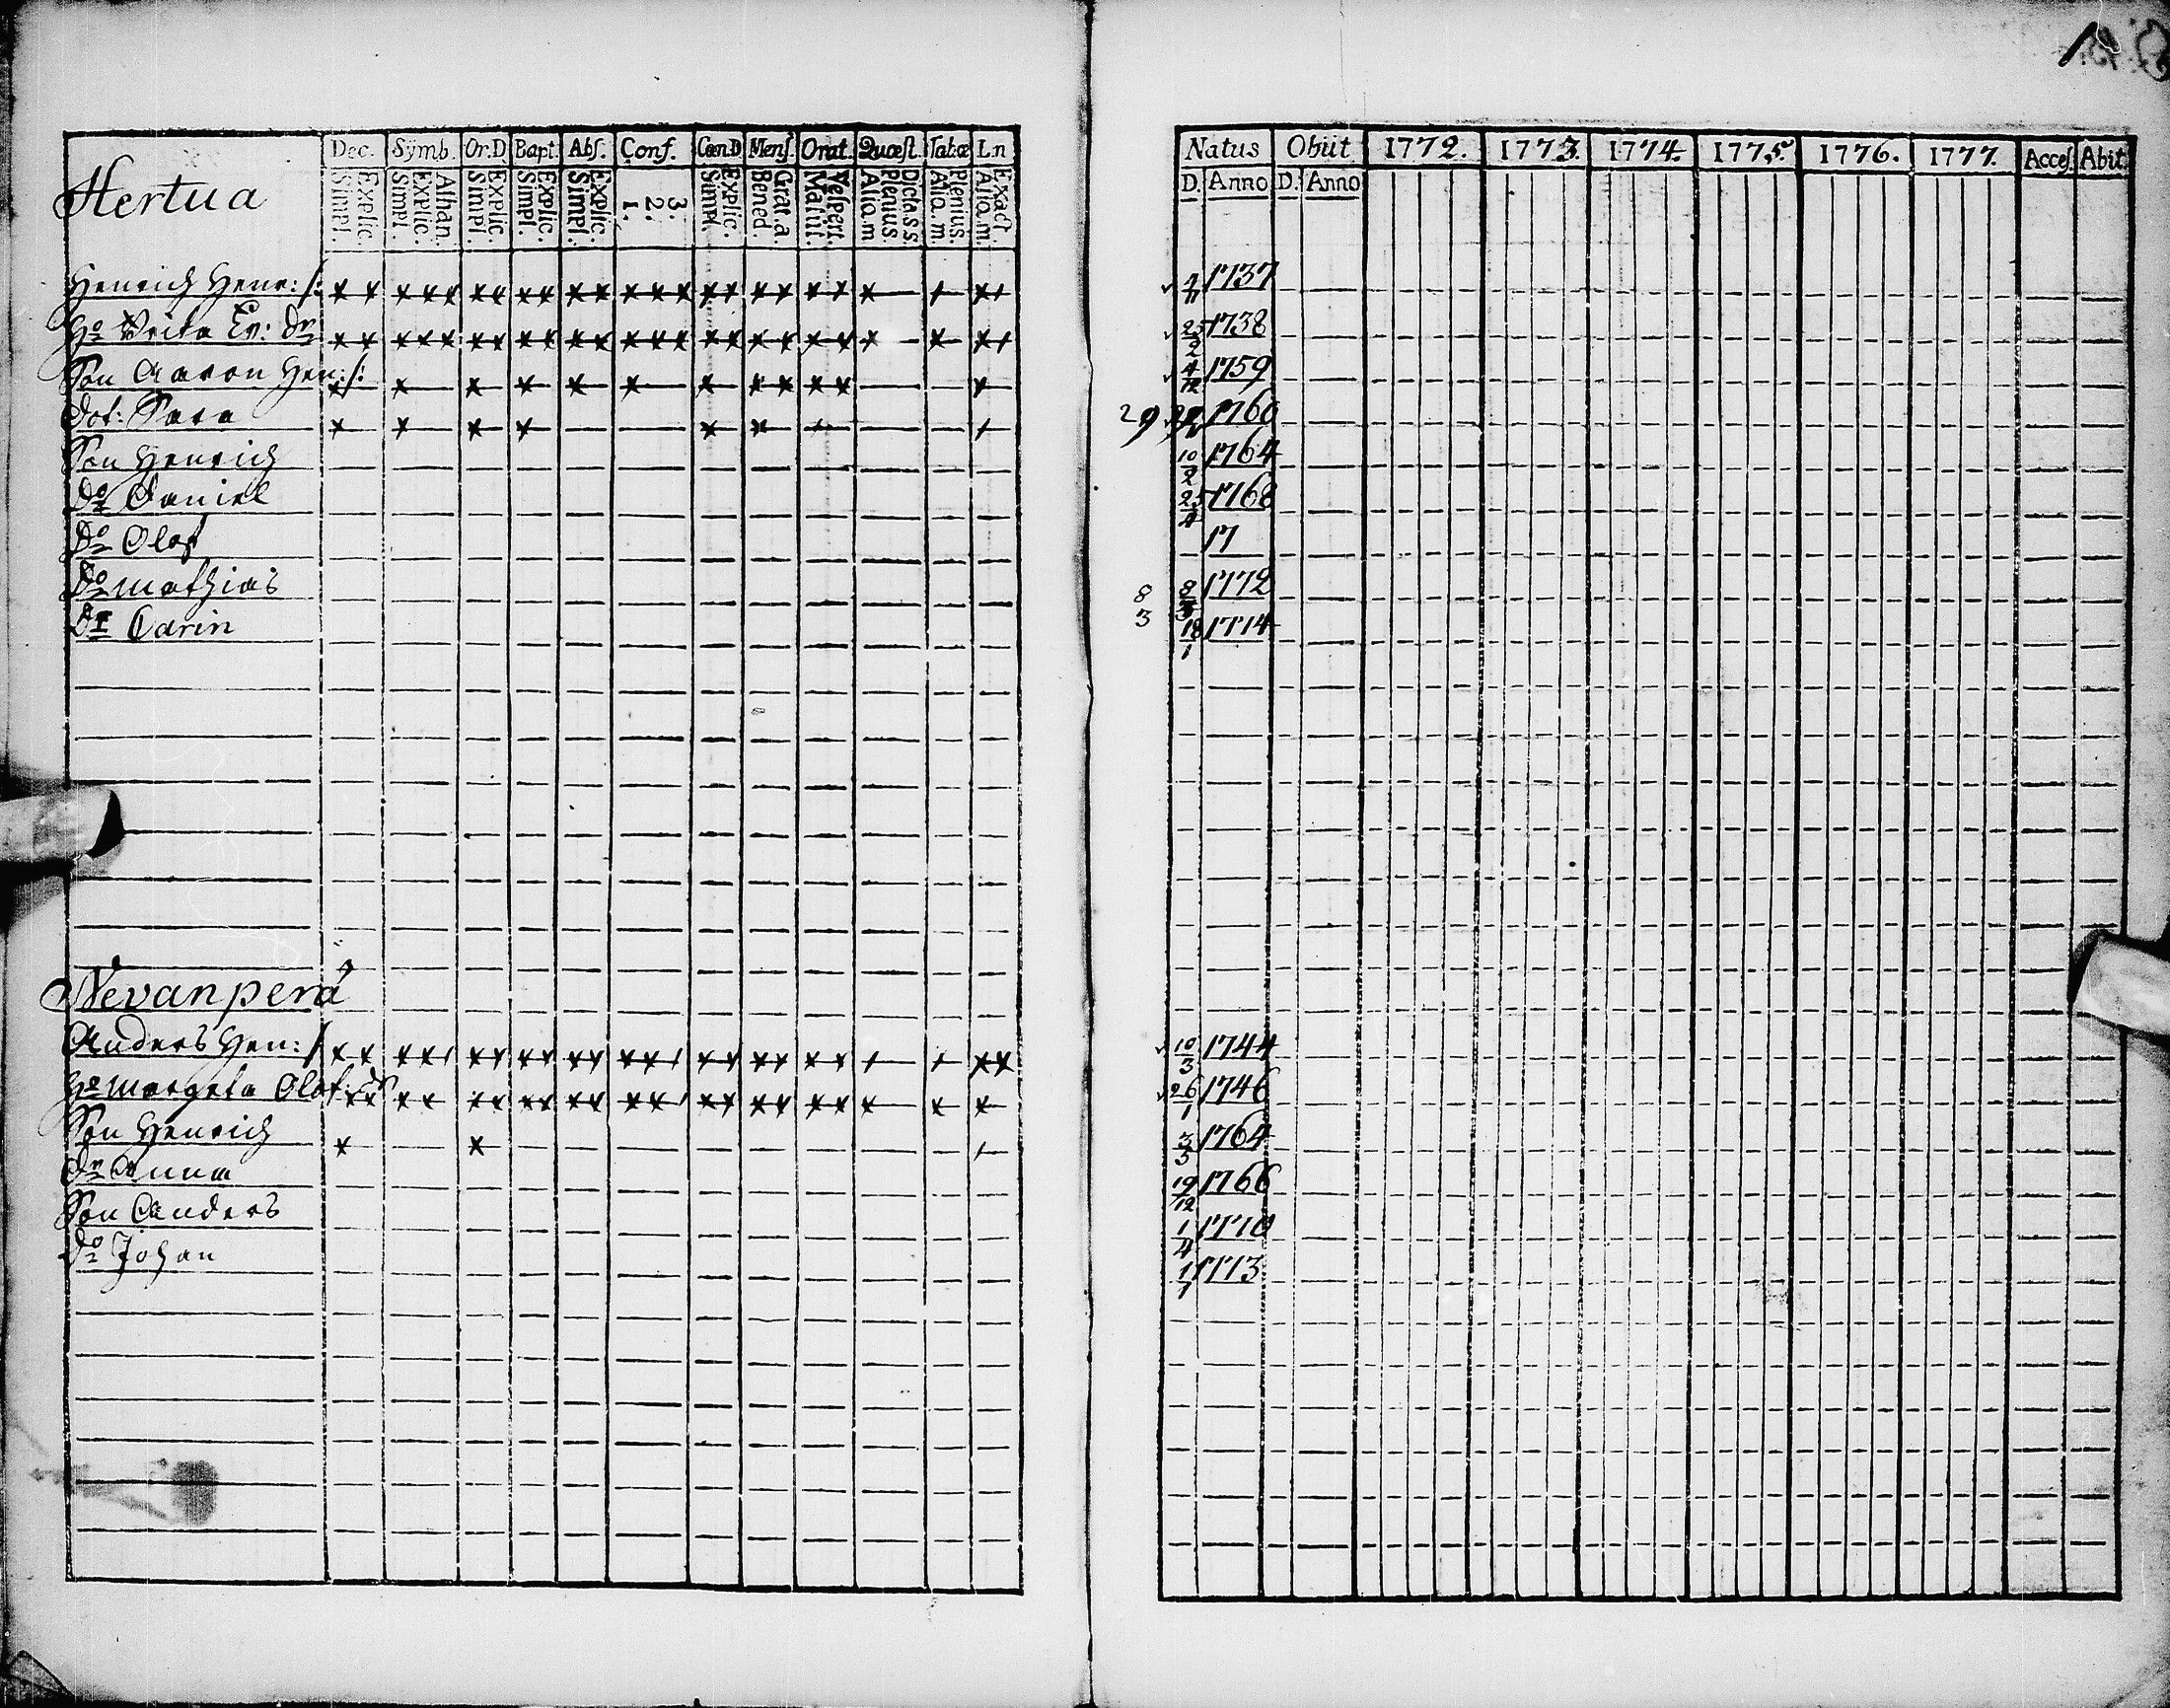 Dec. Symb. Or.D Bapt. Abs. Conf. Cœn.D Mens. Orat. Quæst. Tabæ L.n
Hertua
Explic. Simpl. Athan. Explic. Simpl. Explic. Simpl. Explic. Simpl. Explic. Simpl. 3. 2. 1. Explic. Simpl. Grat. a. Bened. Vespert. Matut. Dicta.s.s. Plenius. Aliq.m Plenius. Aliq.m. Exact. Aliq.m.
Henrich Henr: /:
Ho Brita Er: dr
Son Aaron Hen: /:
dot: Sara
Son Henrich
Do Daniel
Do Olof
Do Mathias
Dr Carin
Nevanperä
Anders Hen: /
Ho Margeta Olof: dr
Son Henrich
Dr Anna
Son Anders
Do Johan
Natus Obiit 1772. 1773. 1774. 1775. 1776. 1777. Acces. Abit.
D. Anno D. Anno
1737
25/2 1738
4/12 1759
29 1760
10/2 1764
25/4 1768
17
8/3 8/3 1772
18/1 1774
10/3 1744
26/1 1746
3/3 1764
19/12 1766
1/4 1770
1773